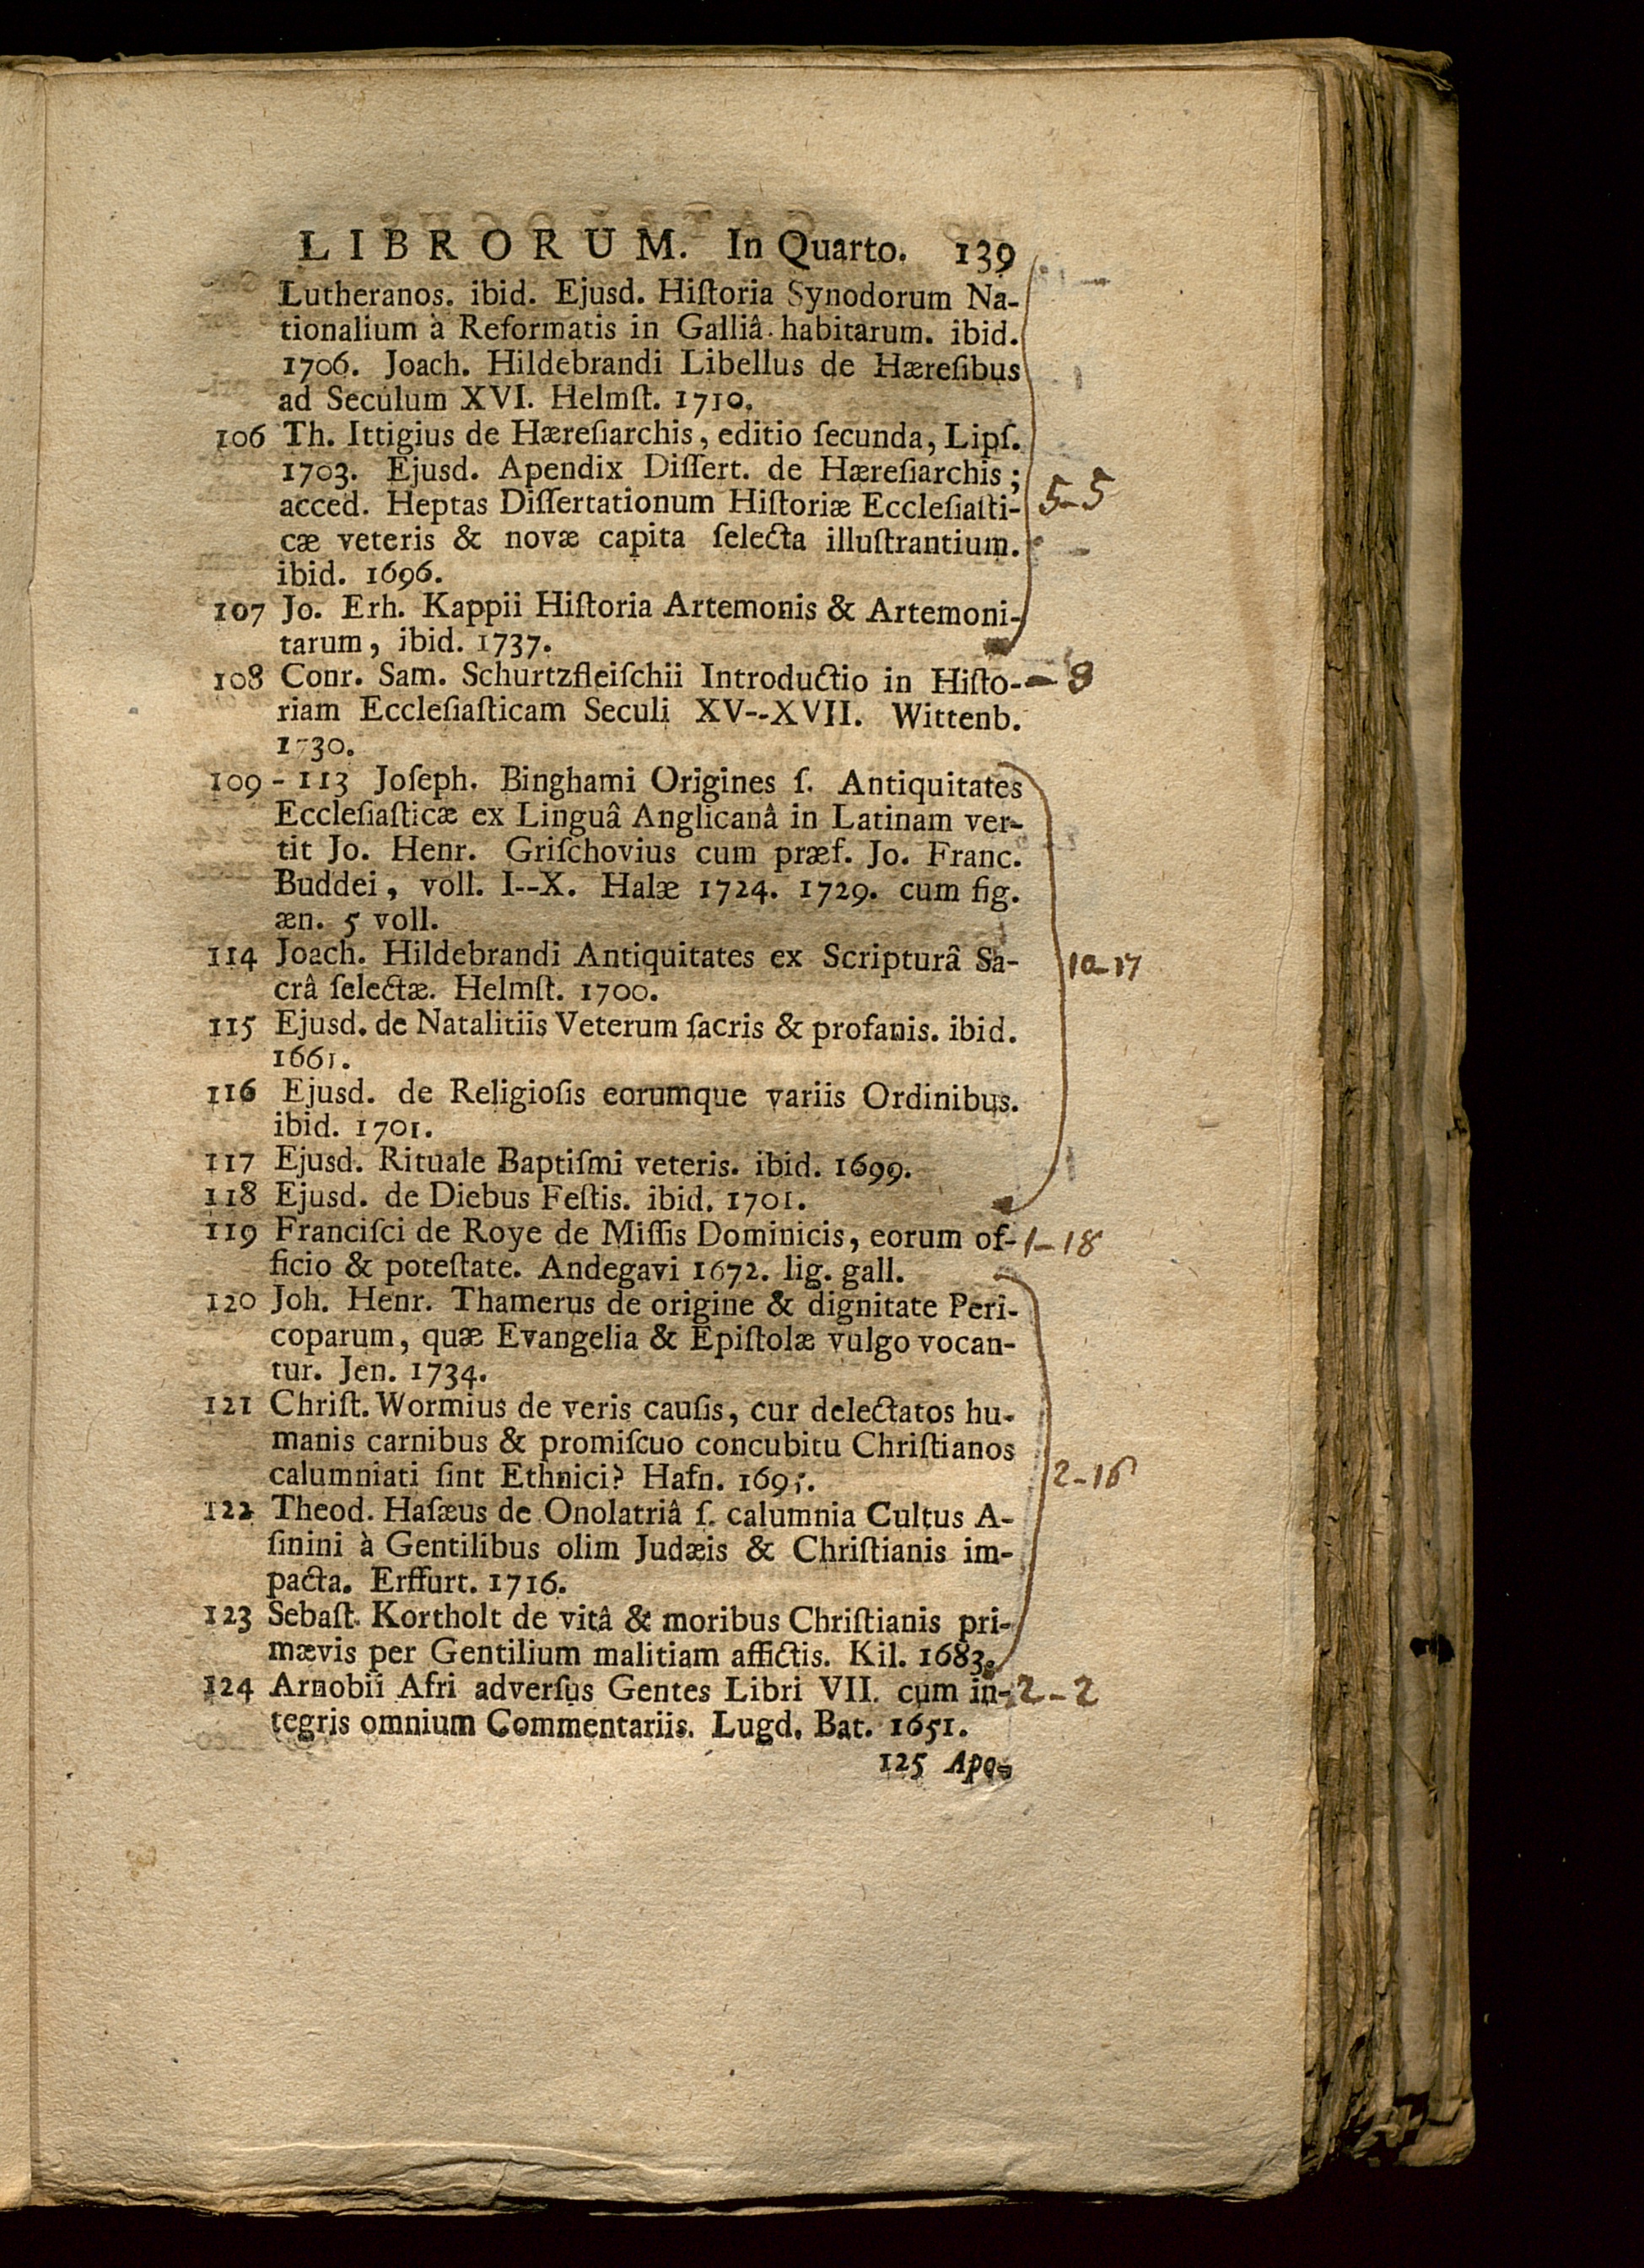 LIBRORUM. In Quarto. 139
Lutheranos. ibid. Ejusd. Hiſtoria Synodorum Na-
tionalium à Reformatis in Galliâ habitarum. ibid.
1706. Joach. Hildebrandi Libellus de Hæreſibus
ad Seculum XVI. Helmſt. 1710.
106 Th. Ittigius de Hæreſiarchis, editio ſecunda, Lipſ.
1703. Ejusd. Apendix Diſſert. de Hæreſiarchis;
acced. Heptas Diſſertationum Hiſtoriæ Eccleſiaſti- 5-5
cæ veteris & novæ capita ſelecta illuſtrantium.
ibid. 1696.
107 Jo. Erh. Kappii Hiſtoria Artemonis & Artemoni-
tarum, ibid. 1737.
108 Conr. Sam. Schurtzfleiſchii Introductio in Hiſto- - 8
riam Eccleſiaſticam Seculi XV--XVII. Wittenb.
1730.
109-113 Joſeph. Binghami Origines ſ. Antiquitates
Eccleſiaſticæ ex Linguâ Anglicanâ in Latinam ver-
tit Jo. Henr. Griſchovius cum præf. Jo. Franc.
Buddei, voll. I--X. Halæ 1724. 1729. cum fig.
æn. 5 voll.
114 Joach. Hildebrandi Antiquitates ex Scripturâ Sa- 10-17
crâ ſelectæ. Helmſt. 1700.
115 Ejusd. de Natalitiis Veterum ſacris & profanis. ibid.
1661.
116 Ejusd. de Religioſis eorumque variis Ordinibus.
ibid. 1701.
117 Ejusd. Rituale Baptiſmi veteris. ibid. 1699.
118 Ejusd. de Diebus Feſtis. ibid. 1701.
119 Franciſci de Roye de Miſſis Dominicis, eorum of- 1-18
ficio & poteſtate. Andegavi 1672. lig. gall.
120 Joh. Henr. Thamerus de origine & dignitate Peri-
coparum, quæ Evangelia & Epiſtolæ vulgo vocan-
tur. Jen. 1734.
121 Chriſt. Wormius de veris cauſis, cur delectatos hu-
manis carnibus & promiſcuo concubitu Chriſtianos
calumniati ſint Ethnici? Hafn. 1695. 2-16
122 Theod. Haſæus de Onolatriâ ſ. calumnia Cultus A-
ſinini à Gentilibus olim Judæis & Chriſtianis im-
pacta. Erffurt. 1716.
123 Sebaſt. Kortholt de vitâ & moribus Chriſtianis pri-
mævis per Gentilium malitiam affictis. Kil. 1683.
124 Arnobii Afri adverſus Gentes Libri VII. cum in- 2-2
tegris omnium Commentariis. Lugd. Bat. 1651.
125 Apo-